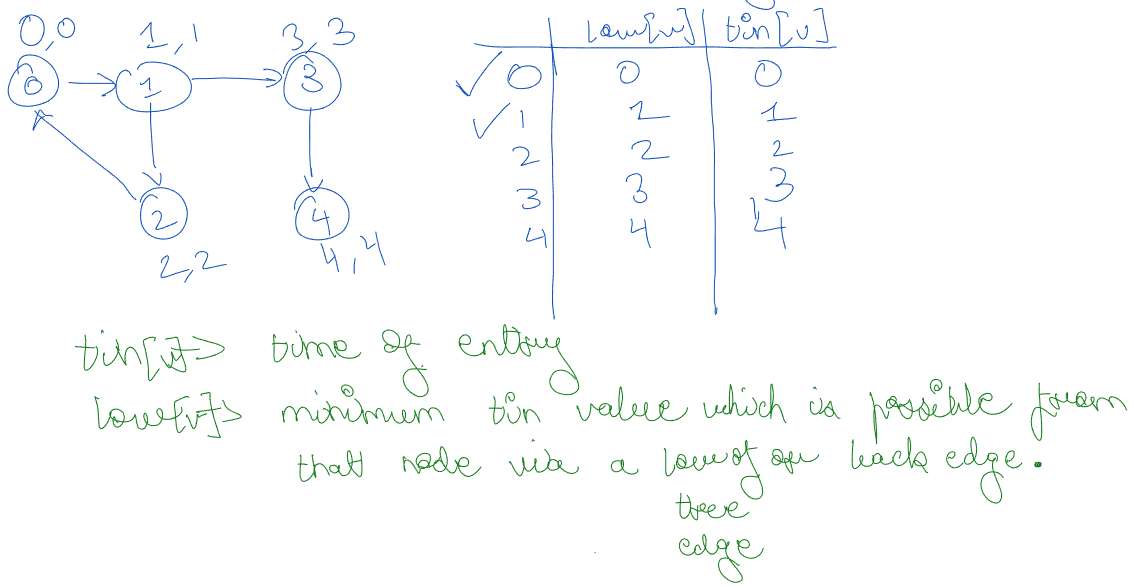 0,0 1,1 3,3
0 1 3
2 4
2,2 4,4
low[v] tin[v]
0 0 0
1 1 1
2 2 2
3 3 3
4 4 4
tin[v] => time of entry
low[v] => minimum tin value which is possible from
that node via a or back edge.
tree
edge